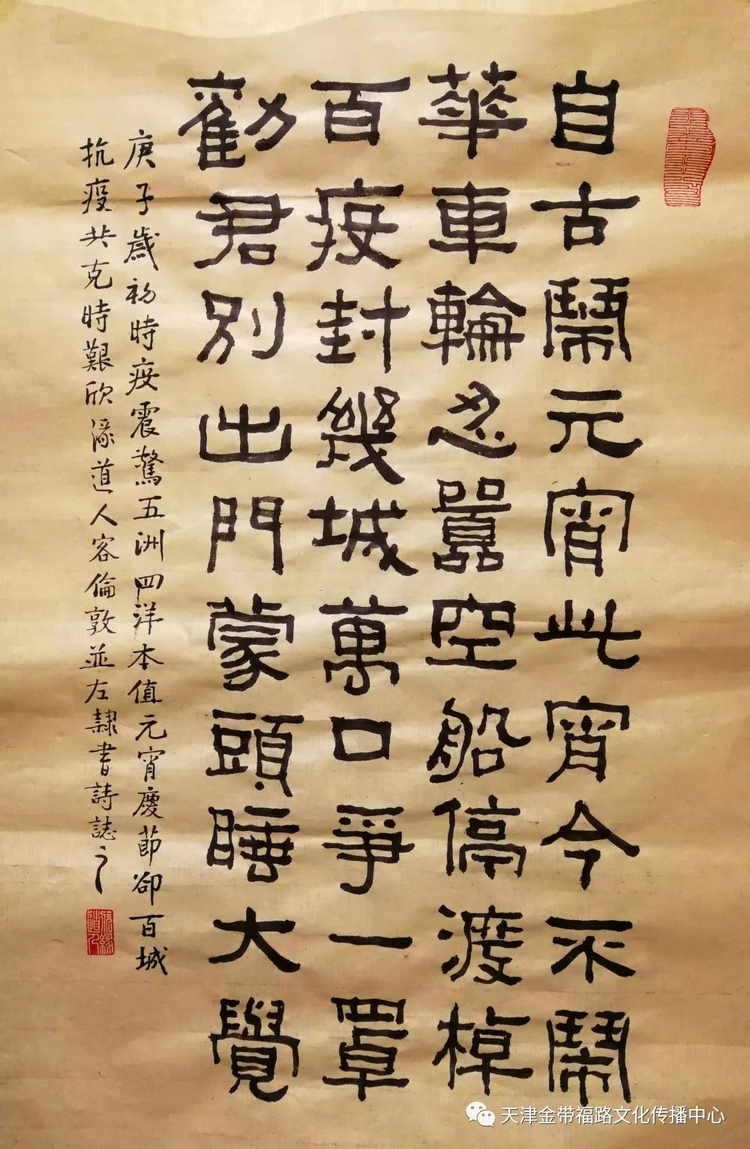 自古鬧元宵此宵今不鬧
華車輪忍囂空船停渡棹
百疫封幾城萬口爭一罩
勸君別出門蒙頭睡大覺
庚子歲初時疫震驚五洲四洋本值元宵慶節卻百城
抗疫共克時艱欣濠道人客倫敦並左隸書詩誌之
天津金带福路文化传播中心